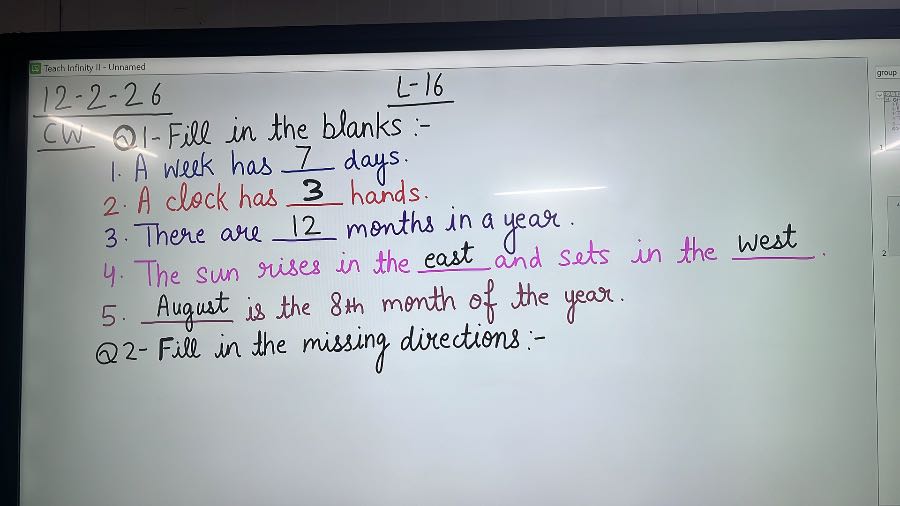 Teach Infinity II - Unnamed
group
12-2-26 L-16
CW Q1- Fill in the blanks :-
1. A week has 7 days.
2. A clock has 3 hands.
3. There are 12 months in a year.
4. The sun rises in the east and sets in the west.
5. August is the 8th month of the year.
Q2- Fill in the missing directions :-
1
2